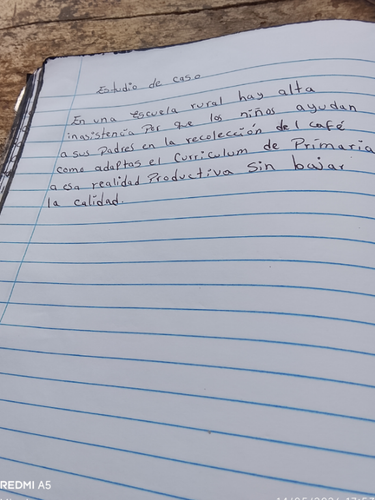 Estudio de caso
En una escuela rural hay alta
inasistencia Por que los niños ayudan
a sus Padres en la recolección del café
como adaptas el Curriculum de Primaria
a esa realidad Productiva Sin bajar
la calidad.
REDMI A5